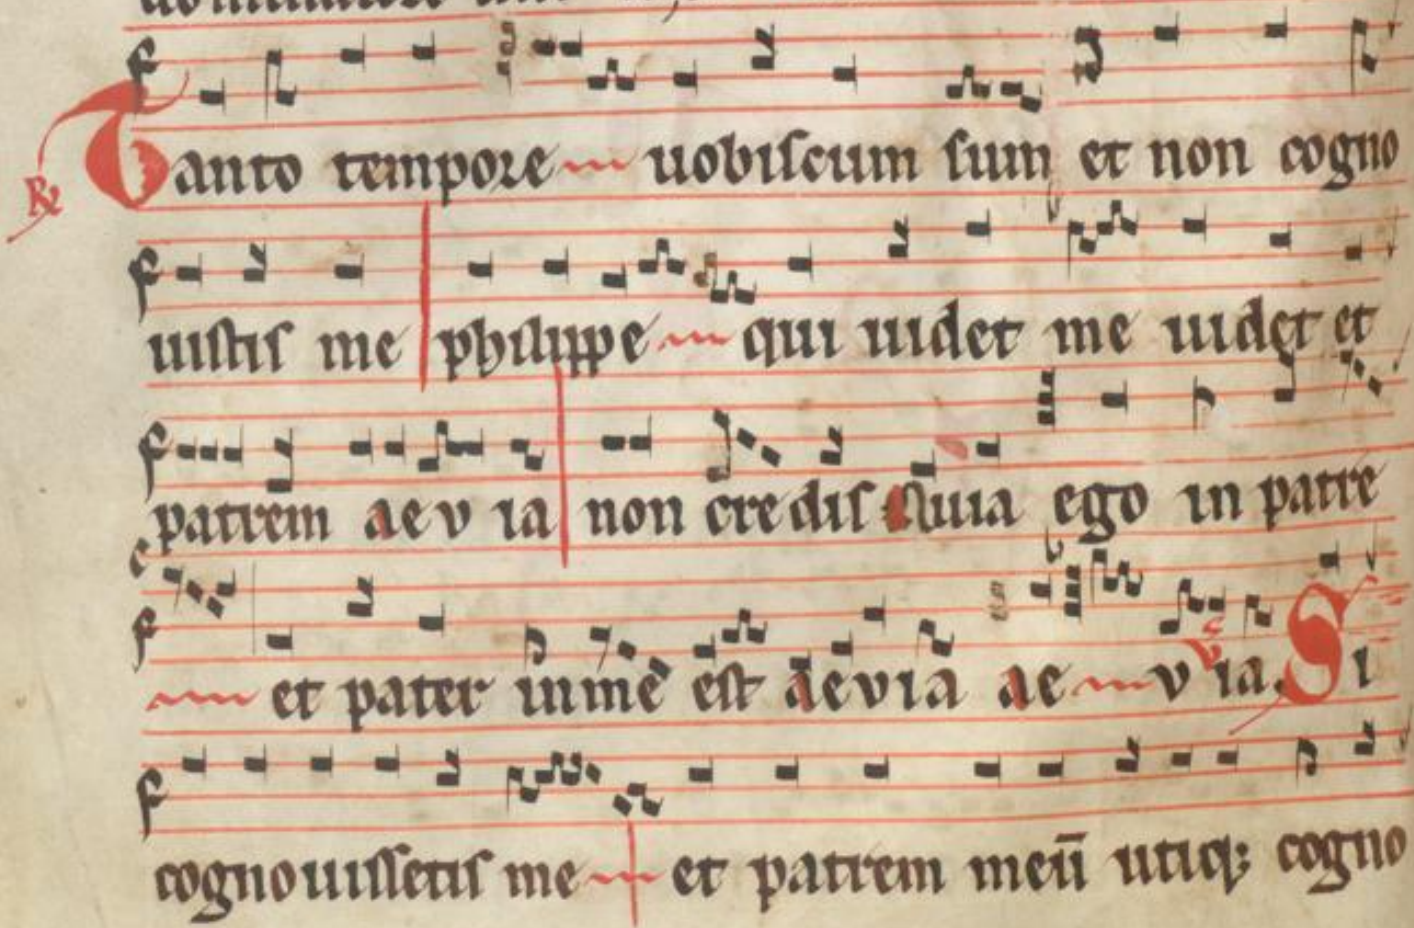 ℟ Tanto tempore uobiscum sum et non cogno
uistis me philippe qui uidet me uidet et
patrem aeuia non credis Quia ego in patre
et pater in me est aeuia ae u ia. ℣ Si
cognouissetis me et patrem meū utiqꝫ cogno